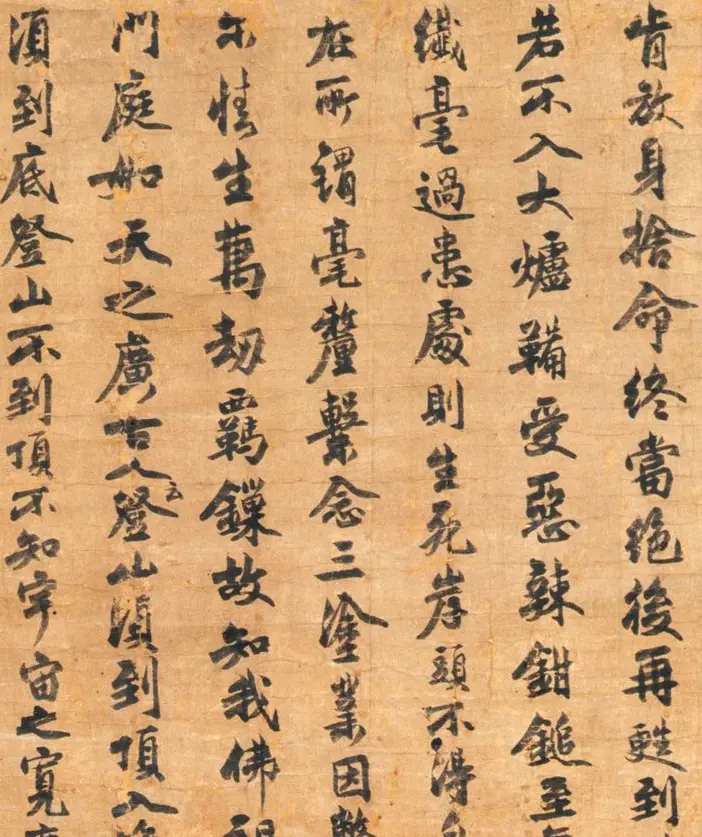 肯放身捨命終當絕後再甦到
若不入大爐鞴受惡辣鉗鎚至
纖毫過患處則生死岸頭不得
在所謂毫釐繫念三塗業因瞥
尓情生萬劫羈鏁故知我佛祖
門庭如天之廣古人云登山須到頂入
須到底登山不到頂不知宇宙之寬